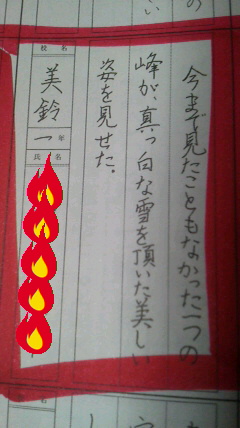 今まで見たこともなかった一つの
峰が、真っ白な雪を頂いた美しい
姿を見せた。
校名
美鈴
一年
氏名